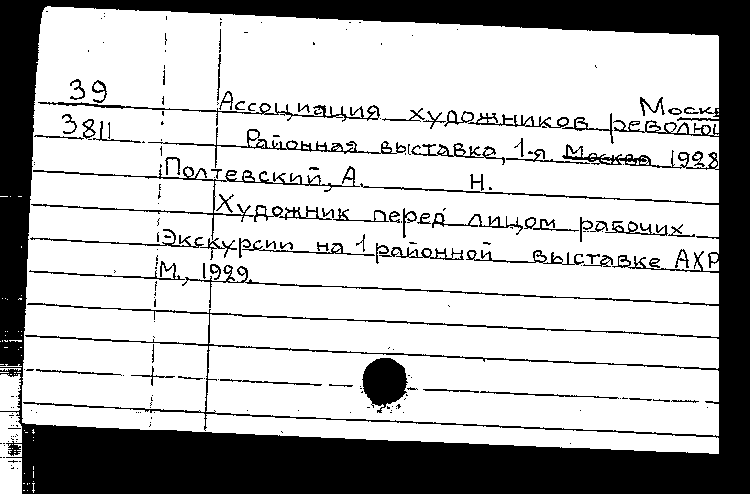 39
3811
Моск
Ассоциация художников революц
Районная выставка, 1-я. Москва 1928
Полтевский, А. Н.
Художник перед лицом рабочих.
Экскурсии на 1 районной выставке АХР
М., 1929.